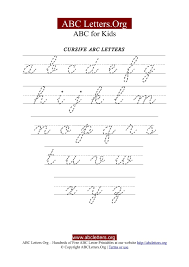 ABC Letters.Org
ABC for Kids
CURSIVE ABC LETTERS
a b c d e f g
h i j k l m
n o p q r s
t u v w
x y z
www.abcletters.org
ABC Letters.Org - Hundreds of Free ABC Letter Printables at our website http://abcletters.org
© Copyright ABCLetters.Org | Terms of use